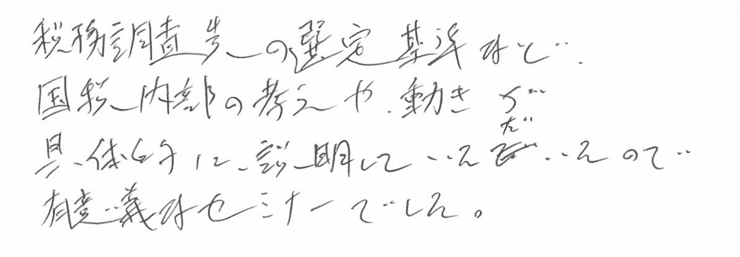 税務調査先の選定基準など、
国税内部の考えや、動きが
具体的に、説明していただいたので
有意義なセミナーでした。